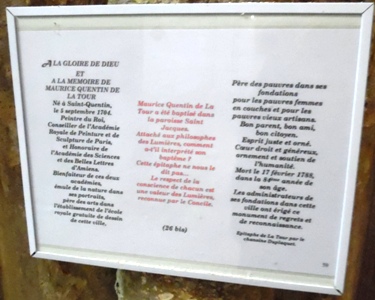 A LA GLOIRE DE DIEU
ET
A LA MEMOIRE DE
MAURICE QUENTIN DE
LA TOUR
Né à Saint-Quentin,
le 5 septembre 1704.
Peintre du Roi,
Conseiller de l'Académie
Royale de Peinture et de
Sculpture de Paris,
et Honoraire de
l'Académie des Sciences
et des Belles Lettres
d'Amiens.
Bienfaiteur de ces deux
académies,
émule de la nature dans
ses portraits,
père des arts dans
l'établissement de l'école
royale gratuite de dessin
de cette ville,
Maurice Quentin de La
Tour a été baptisé dans
la paroisse Saint
Jacques.
Attaché aux philosophes
des Lumières, comment
a-t'il interprété son
baptême ?
Cette épitaphe ne nous le
dit pas...
Le respect de la
conscience de chacun est
une valeur des Lumières,
reconnue par le Concile.
(26 bis)
Père des pauvres dans ses
fondations
pour les pauvres femmes
en couches et pour les
pauvres vieux artisans.
Bon parent, bon ami,
bon citoyen.
Esprit juste et orné.
Cœur droit et généreux,
ornement et soutien de
l'humanité.
Mort le 17 février 1788,
dans la 84ème année de
son âge.
Les administrateurs de
ses fondations dans cette
ville ont érigé ce
monument de regrets et
de reconnaissance.
Epitaphe de La Tour par le
chanoine Duplaquet.